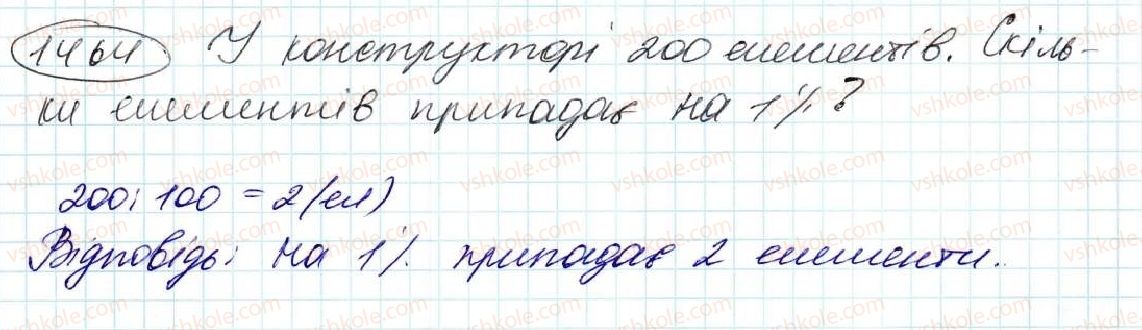 1464 У конструкторі 200 елементів. Скіль-
ки елементів припадає на 1%?
200:100=2(ел)
Відповідь: на 1% припадає 2 елементи.